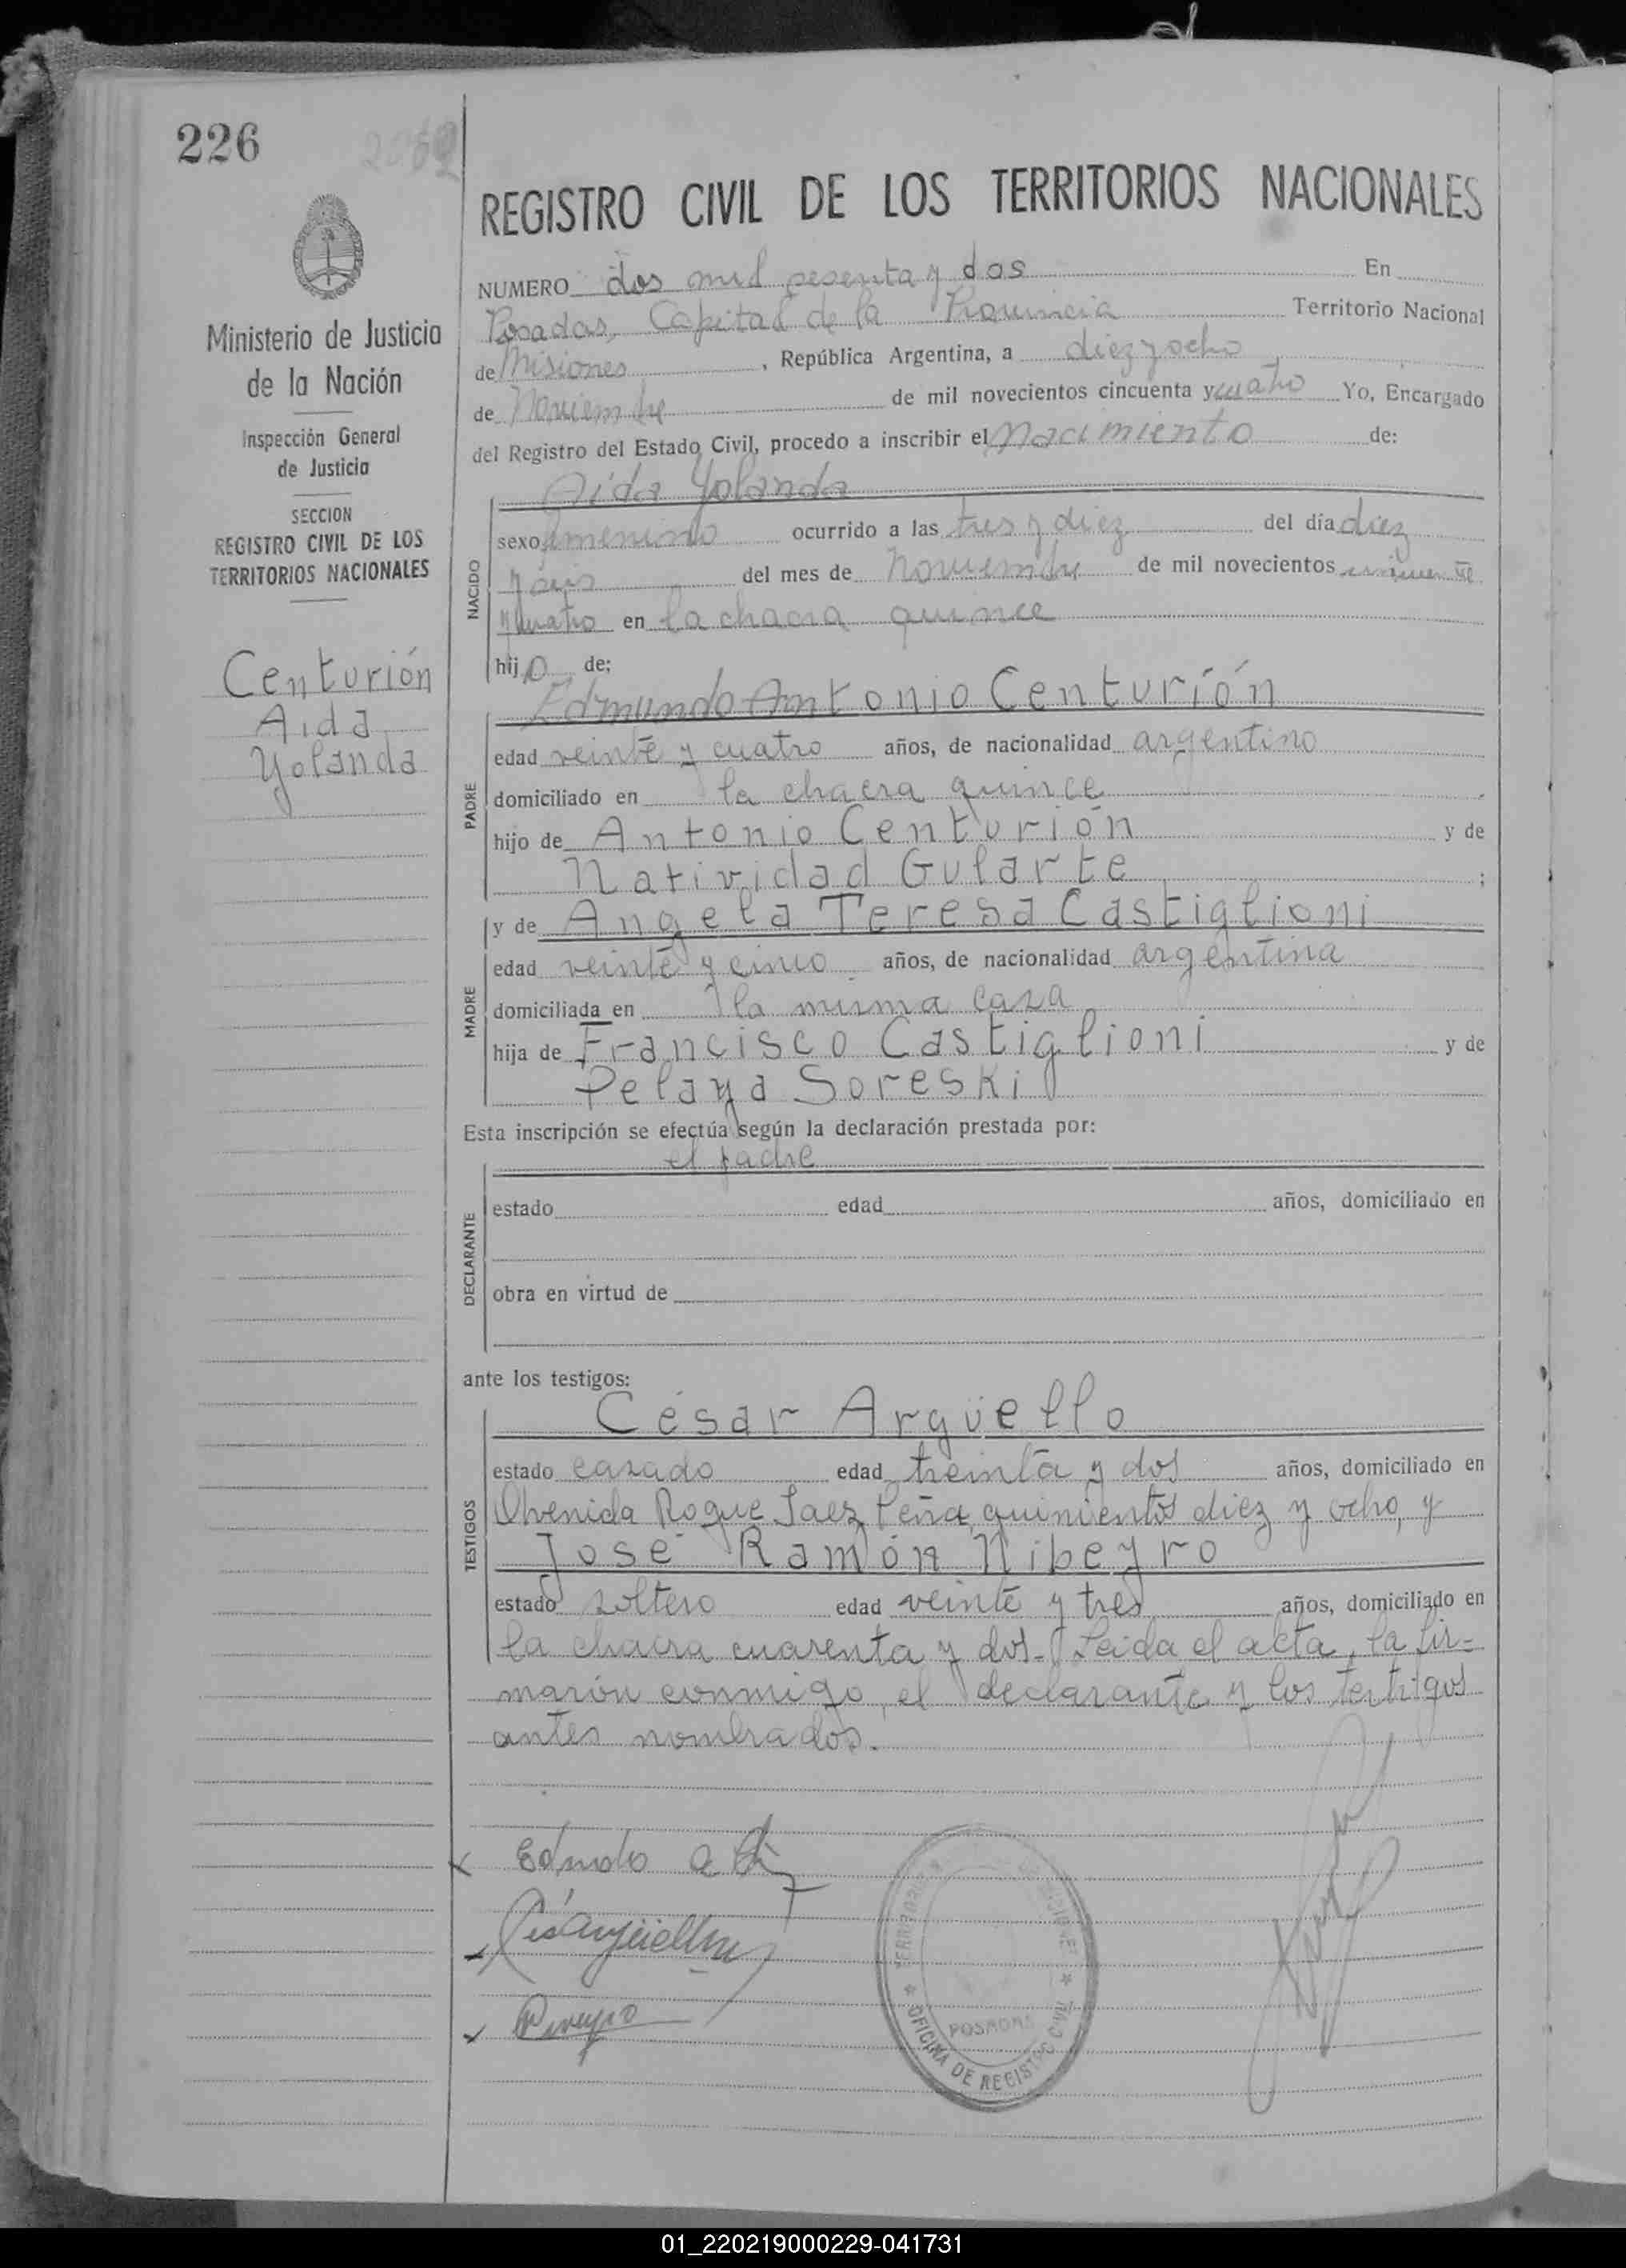 226
2062
REGISTRO CIVIL DE LOS TERRITORIOS NACIONALES
Ministerio de Justicia
de la Nación
Inspección General
de Justicia
SECCION
REGISTRO CIVIL DE LOS
TERRITORIOS NACIONALES
Centurión
Aida
Yolanda
NUMERO dos mil sesenta y dos En
Posadas, Capital de la Provincia Territorio Nacional
de Misiones, República Argentina, a diez y ocho
de Noviembre de mil novecientos cincuenta y cuatro Yo, Encargado
del Registro del Estado Civil, procedo a inscribir el Nacimiento de:
Aida Yolanda
NACIDO
sexo femenino ocurrido a las tres y diez del día diez
y seis del mes de Noviembre de mil novecientos cincuenta
y cuatro en la chacra quince
hija de:
Edmundo Antonio Centurión
PADRE
edad veinte y cuatro años, de nacionalidad argentino
domiciliado en la chacra quince
hijo de Antonio Centurión y de
Natividad Gularte;
y de Angela Teresa Castiglioni
MADRE
edad veinte y cinco años, de nacionalidad argentina
domiciliada en la misma casa
hija de Francisco Castiglioni y de
Pelaya Soreski
Esta inscripción se efectúa según la declaración prestada por:
el padre
DECLARANTE
estado edad años, domiciliado en
obra en virtud de
ante los testigos:
César Argüello
TESTIGOS
estado casado edad treinta y dos años, domiciliado en
Avenida Roque Saez Peña quinientos diez y ocho, y
José Ramón Nibeyro
estado soltero edad veinte y tres años, domiciliado en
la chacra cuarenta y dos.- Leida el acta, la fir=
marón conmigo, el declarante y los testigos
antes nombrados.
OFICINA DE REGISTRO CIVIL
POSADAS
01_220219000229-041731